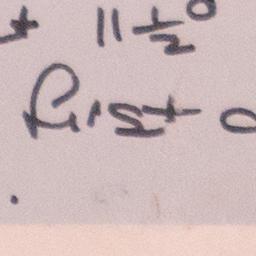 11½°
first